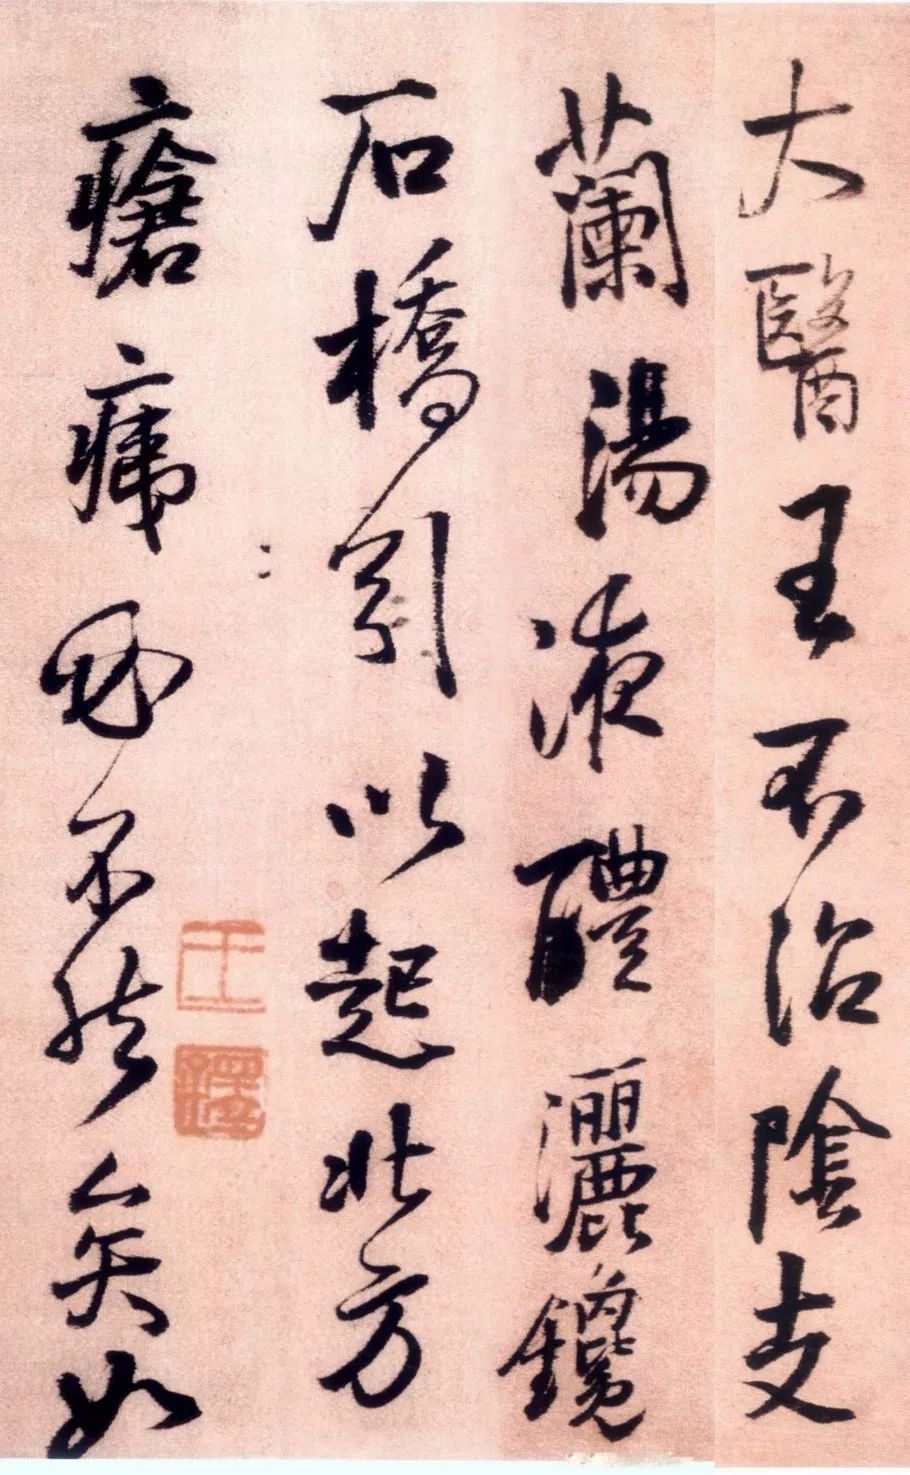 大醫王不治陰支
蘭湯液醴灑鑱
石橋引以起北方
瘡痍不然矣如
王鐸